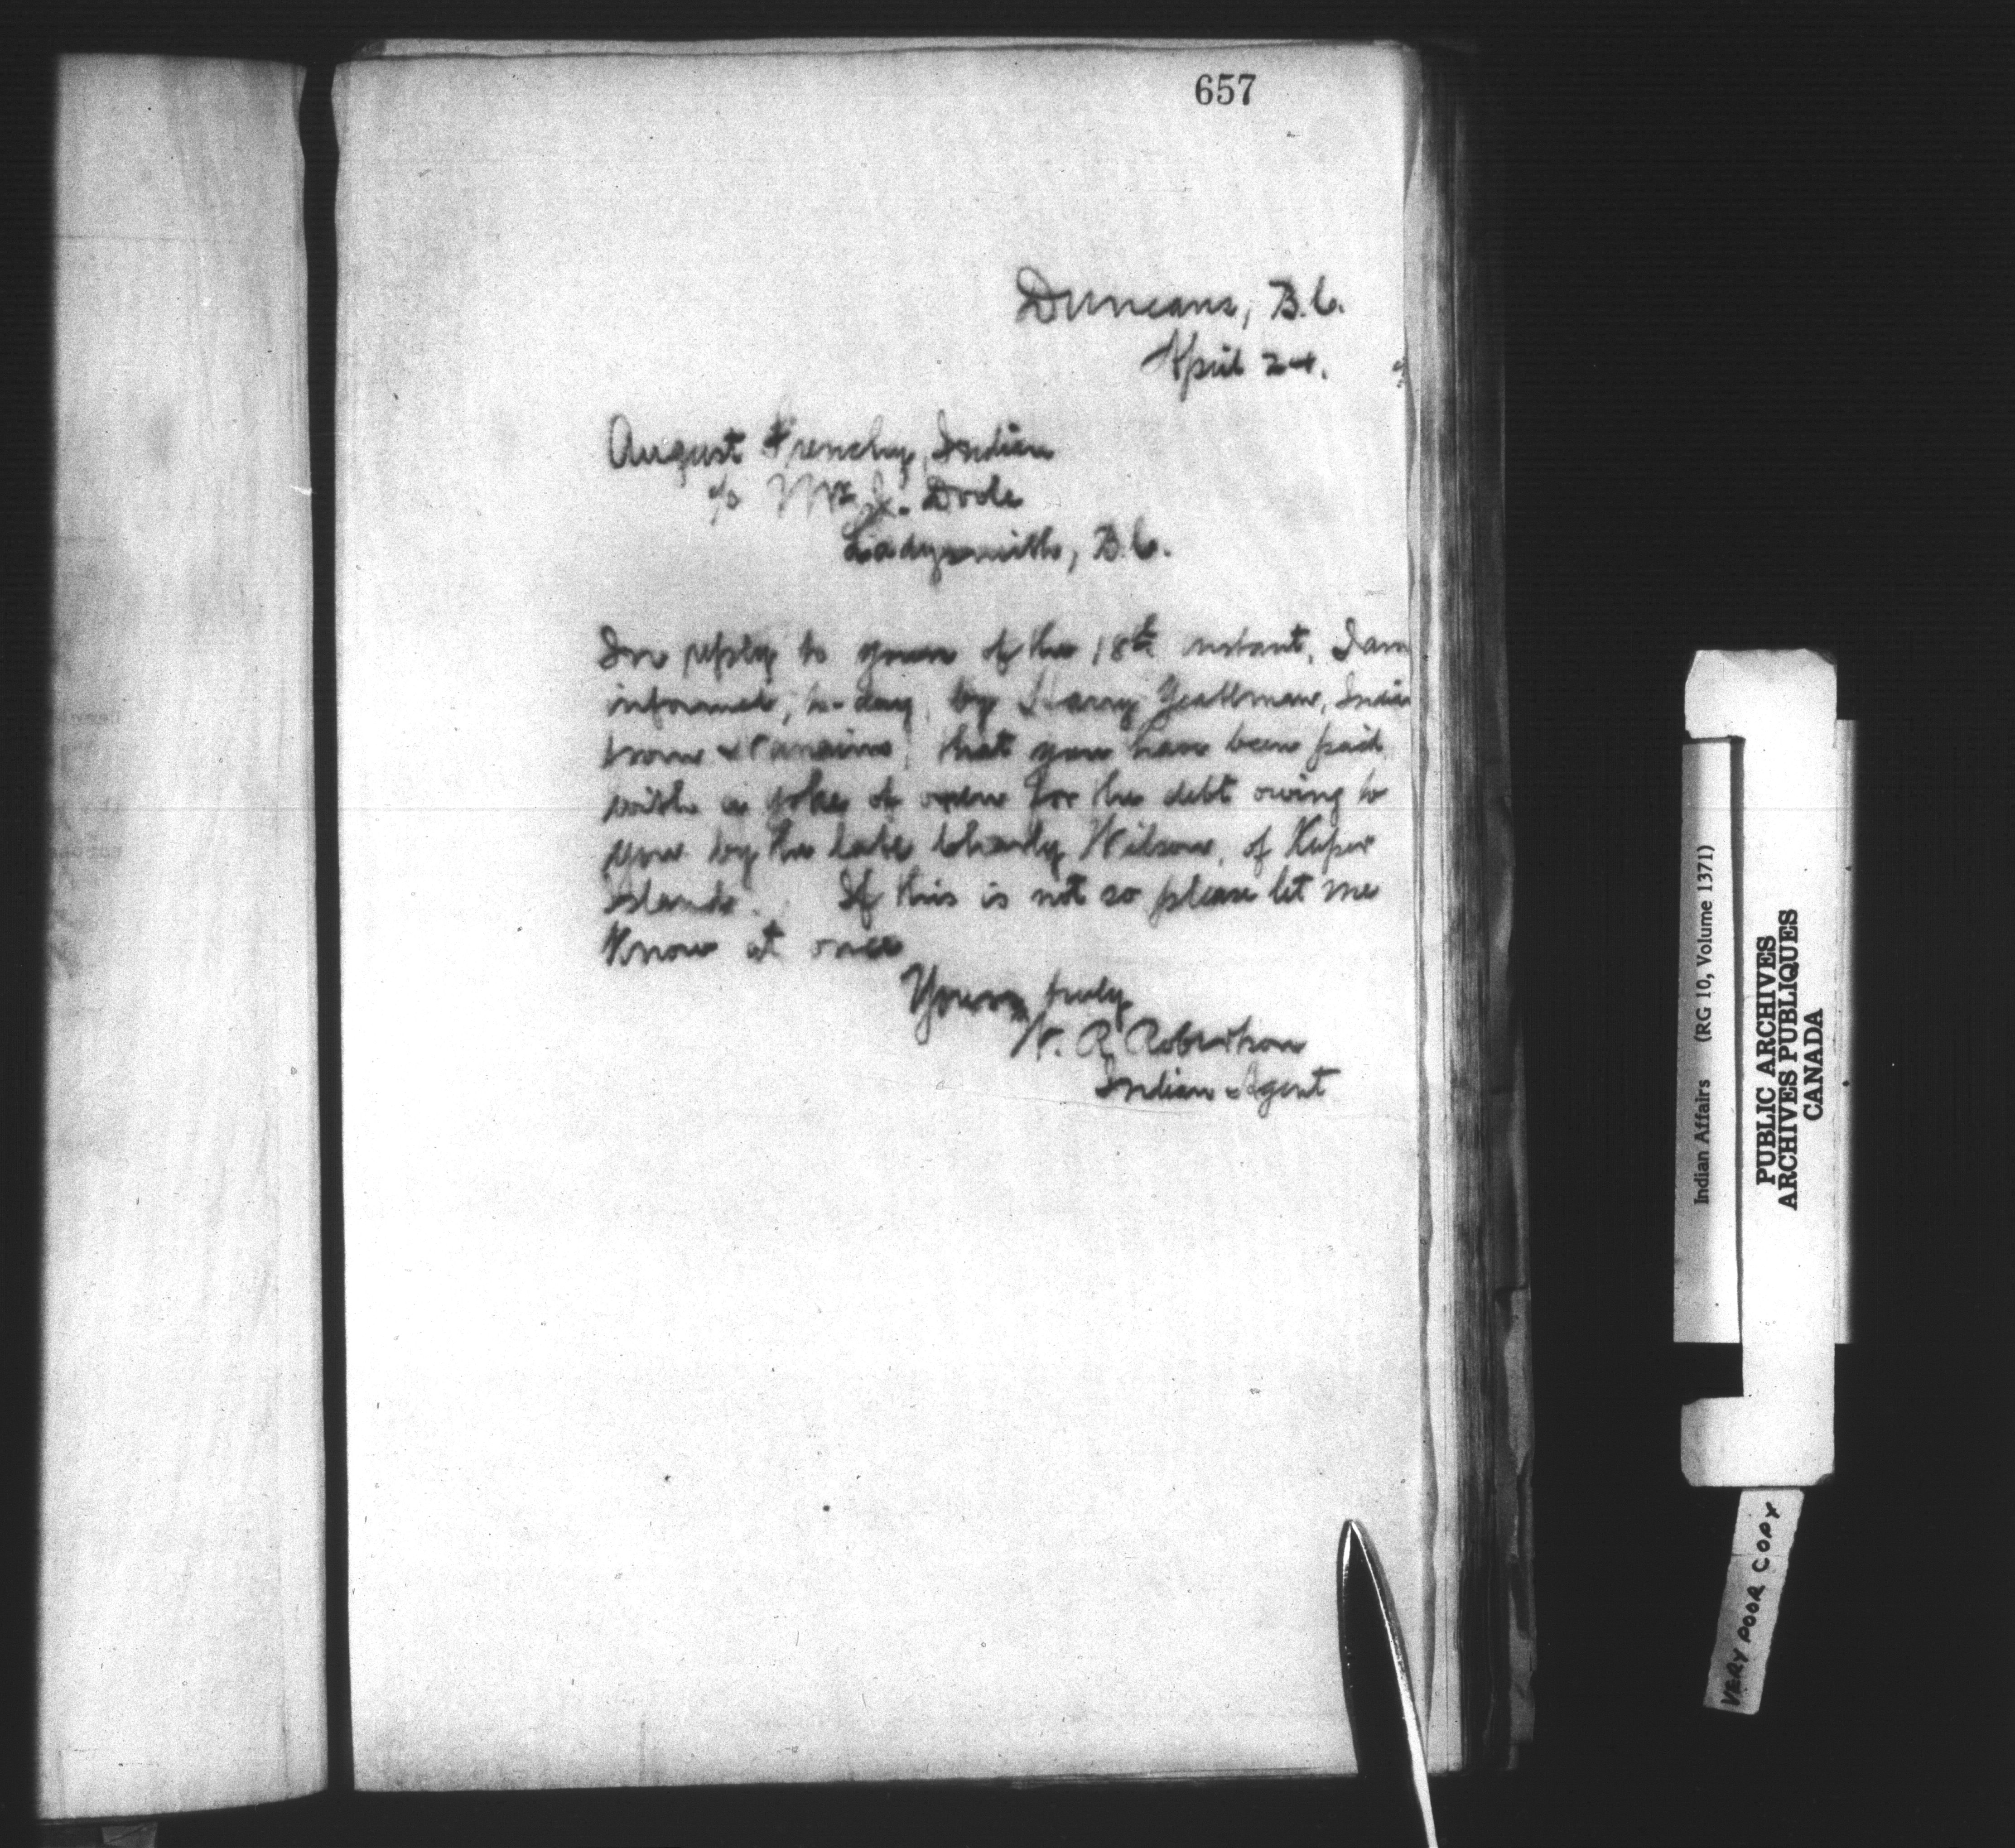 657
Duncans, B.C.
April 24.
August Frenchy, Indian
c/o Mr. J. Doole
Ladysmith, B.C.
In reply to yours of the 18th instant, I am
informed, to-day, by Harry Yeallman, Indian
from Nanaimo, that you have been paid
with a yoke of oxen for the debt owing to
you by the late Charly Wilson, of Kuper
Islands. If this is not so please let me
know at once
Yours truly
W. R. Robertson
Indian Agent
Indian Affairs (RG 10, Volume 1371)
PUBLIC ARCHIVES
ARCHIVES PUBLIQUES
CANADA
VERY POOR COPY